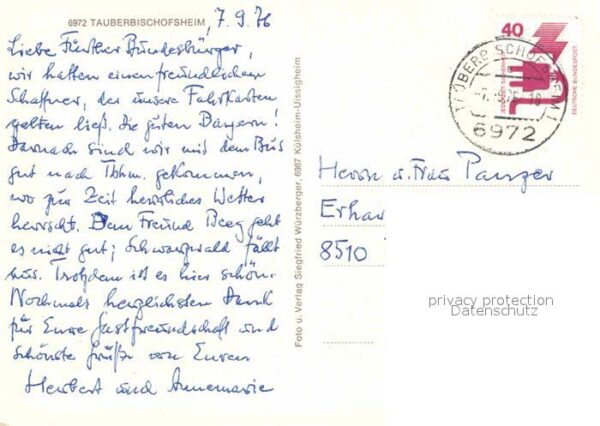 6972 TAUBERBISCHOFSHEIM, 7.9.76
Liebe Fürther Bundesbürger,
wir hatten einen freundlichen
Schaffner, der unsere Fahrkarten
gelten ließ. Die guten Bayern!
Darnach sind wir mit dem Bus
gut nach Tbhm. gekommen,
wo zur Zeit herrliches Wetter
herrscht. Dem Freund Beeg geht
es nicht gut; Schwarzwald fällt
aus. Trotzdem ist es hier schön.
Nochmals herzlichsten Dank
für Eure Gastfreundschaft und
schönste Grüße von Euren
Herbert und Annemarie
Foto u. Verlag Siegfried Würzberger, 6987 Külsheim-Uissigheim
40
DEUTSCHE BUNDESPOST
6972
Herrn u. Frau Panzer
Erhar
8510
privacy protection
Datenschutz